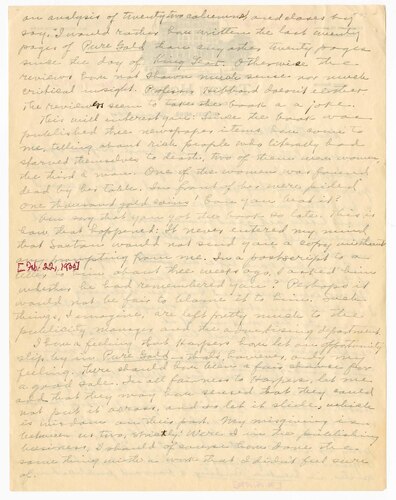 an analysis of twenty two columns, and closes by
say, "I would rather have written the last twenty
pages of Pure Gold than any other twenty pages
since the day of King Lear. Otherwise the
reviews have not shown much sense nor much
critical insight. Professor Hibbard doesn't either
The reviewers seem to take the book as a joke.
This will interest you. Since the book was
published three newspaper items have come to
me, telling about rich people who literally had
starved themselves to death, two of them were women,
the third a man. One of the women was found
dead by her table. In front of her were piled
one thousand gold coins! Can you beat it?
You say that you got the book so late. This is
how that happened: It never entered my mind
that Saxton would not send you a copy without
any prompting from me. In a postscript to an
[Feb. 22, 1936]
about three weeks ago, I asked him
whether he had remembered you? Perhaps it
would not be fair to blame it to him. Such
things, I imagine, are left pretty much to the
publicity manager and the advertising department.
I have a feeling that Harpers have let an opportunity
slip by in Pure Gold - that's, however, only my
feeling. There should have been a fair chance for
a good sale. In all fairness to Harpers, let me
add that they may have sensed that they could
not put it across, and so let it slide, which
is wisdom on their part. My misgiving is
between us two, strictly. Were I in the publishing
business, I should of course have done the
same thing with a work that I didn't feel sure
of.